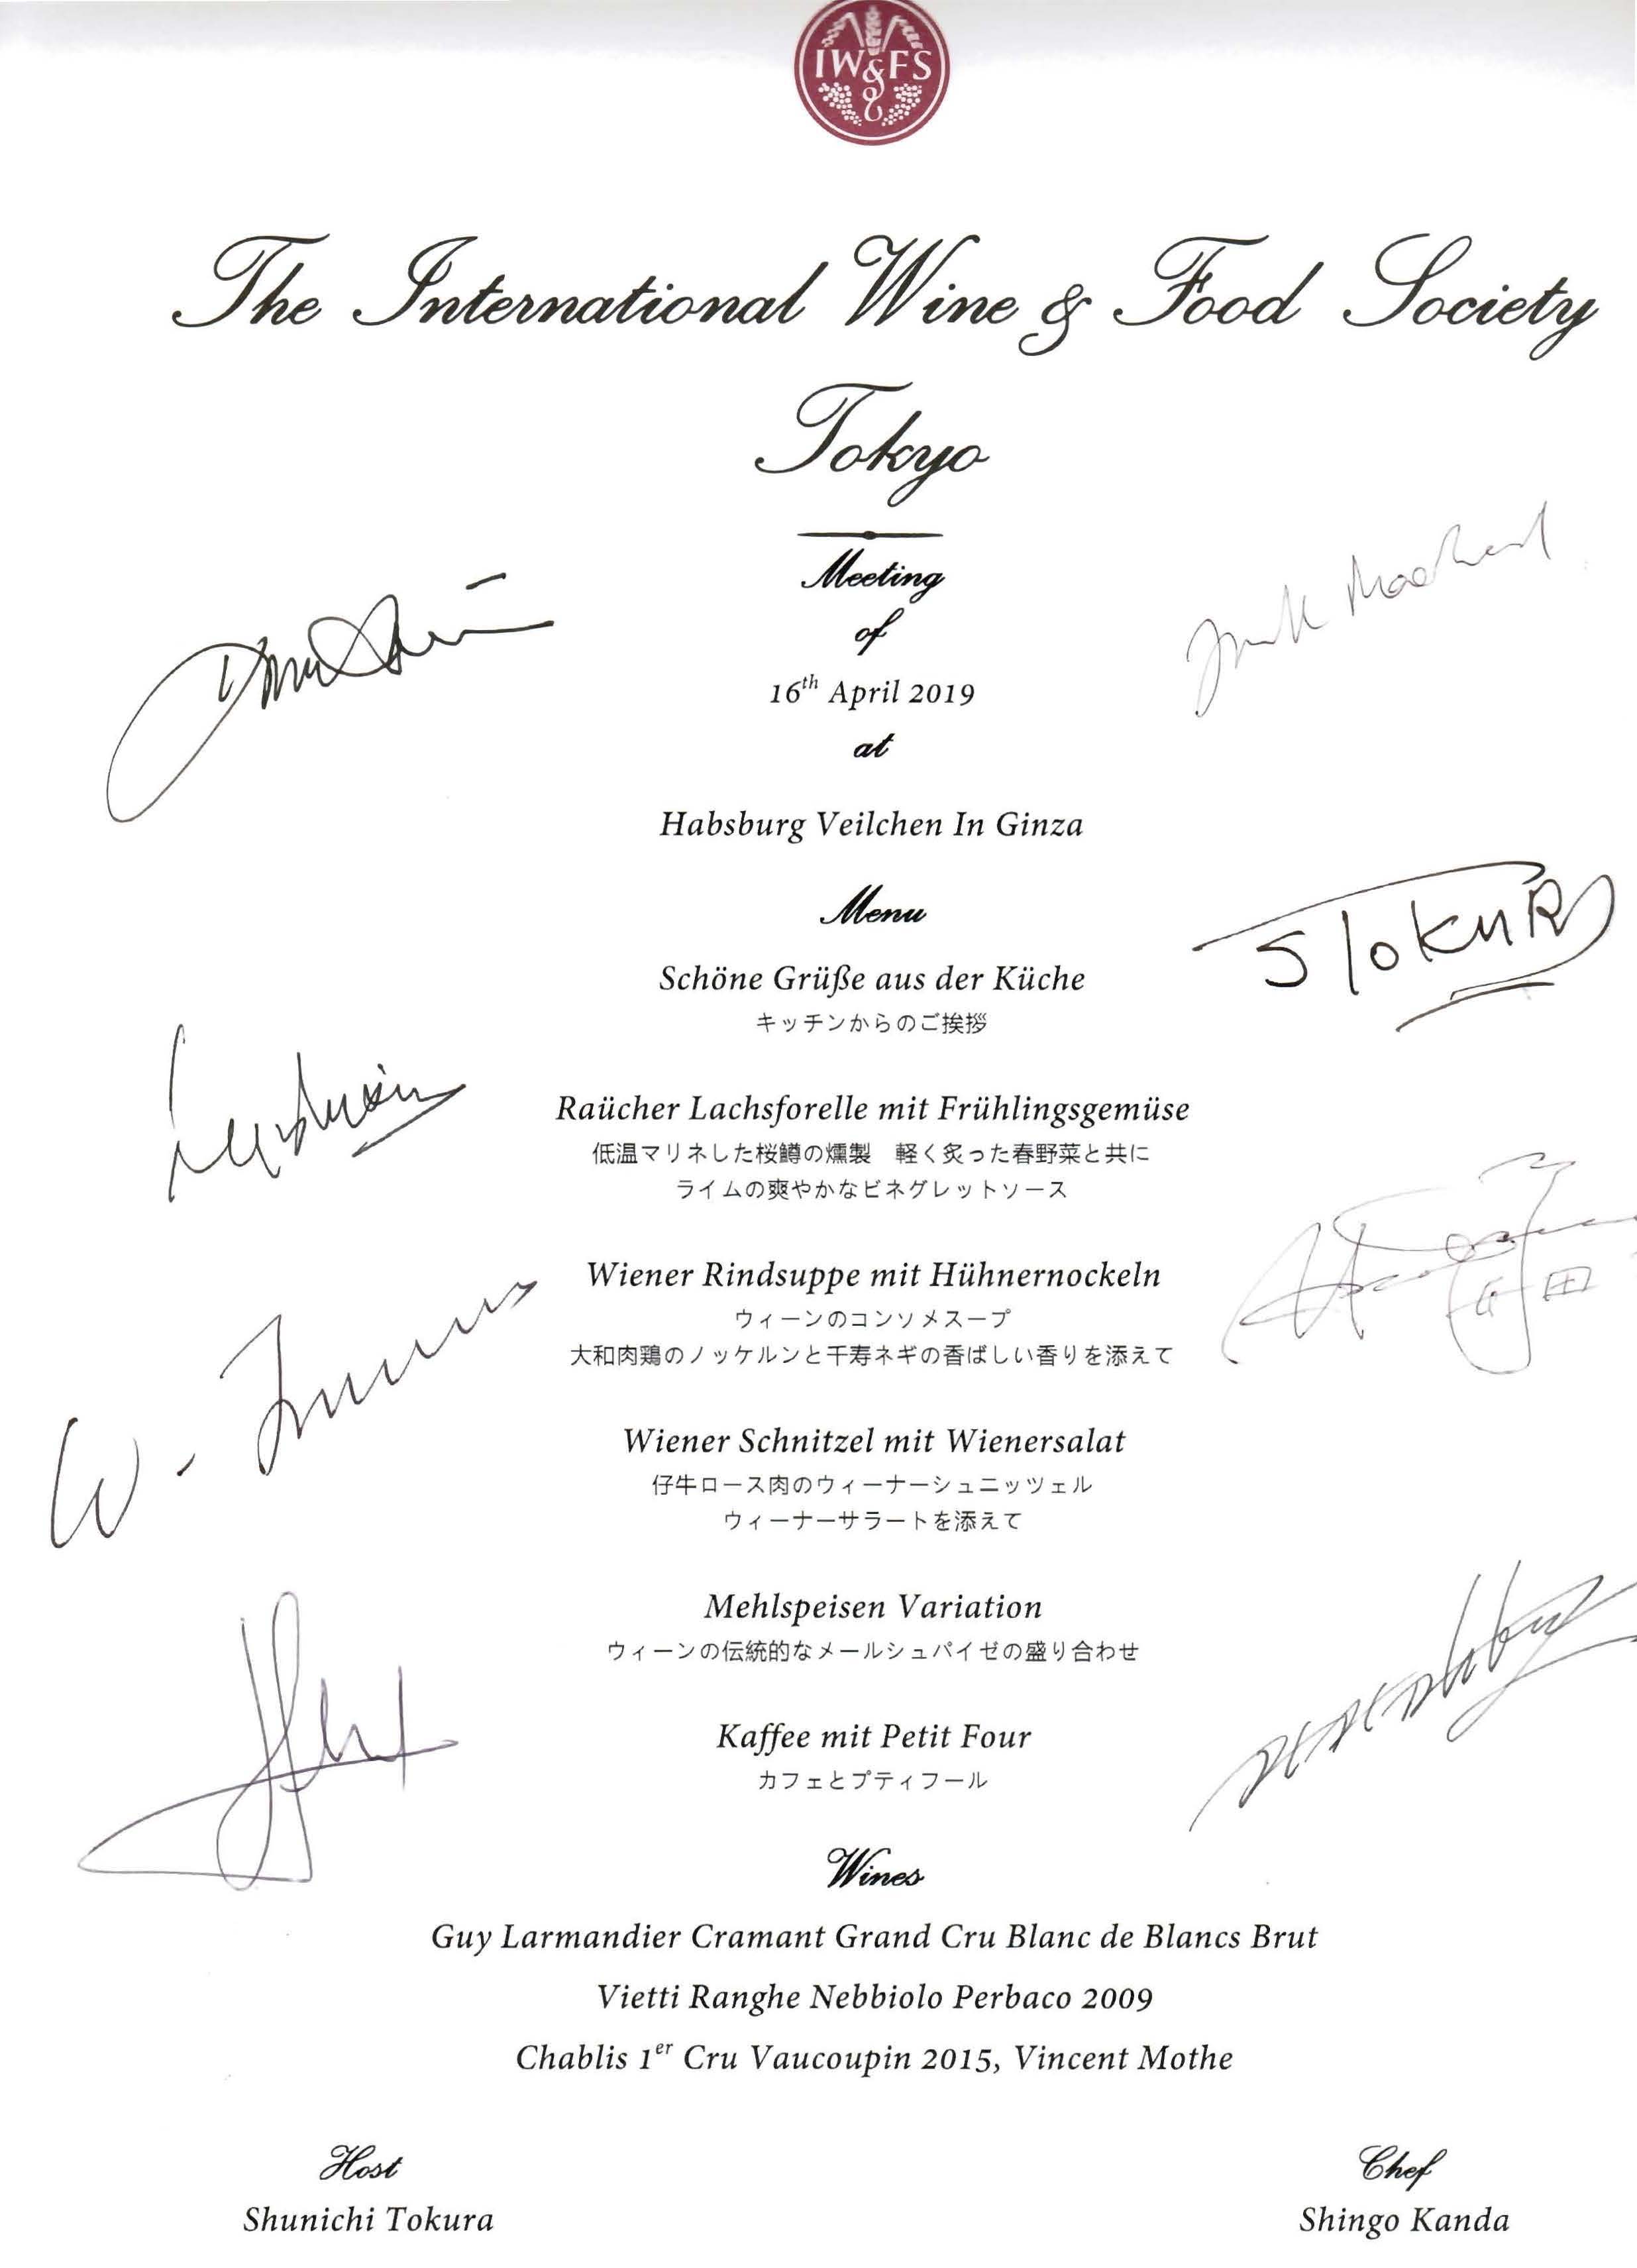 IW&FS
The International Wine & Food Society
Tokyo
Meeting
of
16th April 2019
at
Habsburg Veilchen In Ginza
Menu
Schöne Grüße aus der Küche
キッチンからのご挨拶
S TOKURA
Raücher Lachsforelle mit Frühlingsgemüse
低温マリネした桜鱒の燻製　軽く炙った春野菜と共に
ライムの爽やかなビネグレットソース
Wiener Rindsuppe mit Hühnernockeln
ウィーンのコンソメスープ
大和肉鶏のノッケルンと千寿ネギの香ばしい香りを添えて
Wiener Schnitzel mit Wienersalat
仔牛ロース肉のウィーナーシュニッツェル
ウィーナーサラートを添えて
Mehlspeisen Variation
ウィーンの伝統的なメールシュパイゼの盛り合わせ
Kaffee mit Petit Four
カフェとプティフール
Wines
Guy Larmandier Cramant Grand Cru Blanc de Blancs Brut
Vietti Ranghe Nebbiolo Perbaco 2009
Chablis 1er Cru Vaucoupin 2015, Vincent Mothe
Host
Shunichi Tokura
Chef
Shingo Kanda